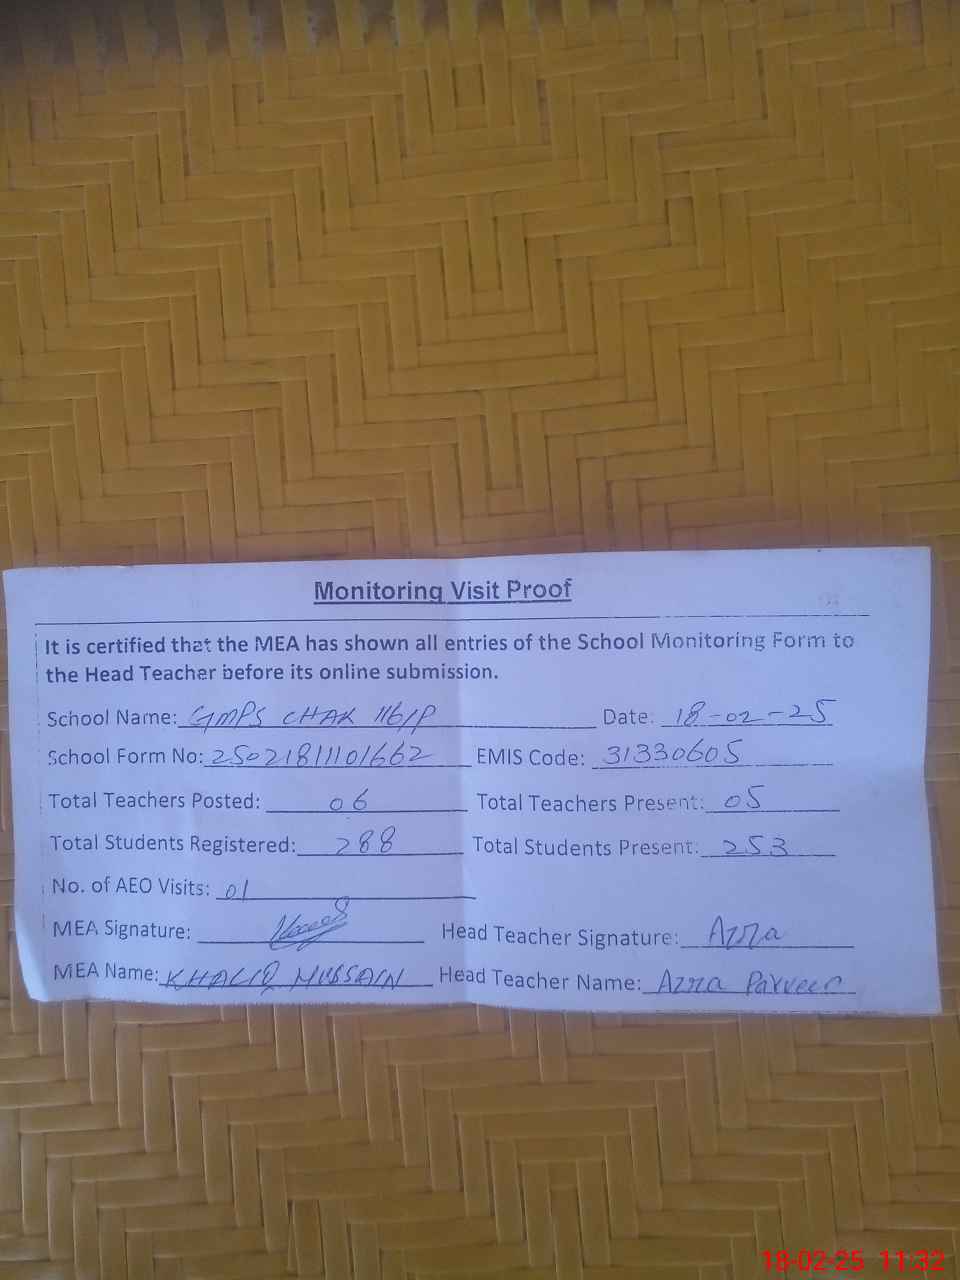 Monitoring Visit Proof
It is certified that the MEA has shown all entries of the School Monitoring Form to
the Head Teacher before its online submission.
School Name: GMPS CHAK 116/P Date: 18-02-25
School Form No: 25021811101662 EMIS Code: 31330605
Total Teachers Posted: 06 Total Teachers Present: 05
Total Students Registered: 288 Total Students Present: 253
No. of AEO Visits: 01
MEA Signature: Head Teacher Signature: Azra
MEA Name: KHALIQ HUSSAIN Head Teacher Name: Azra Parveen
18-02-25 11:32